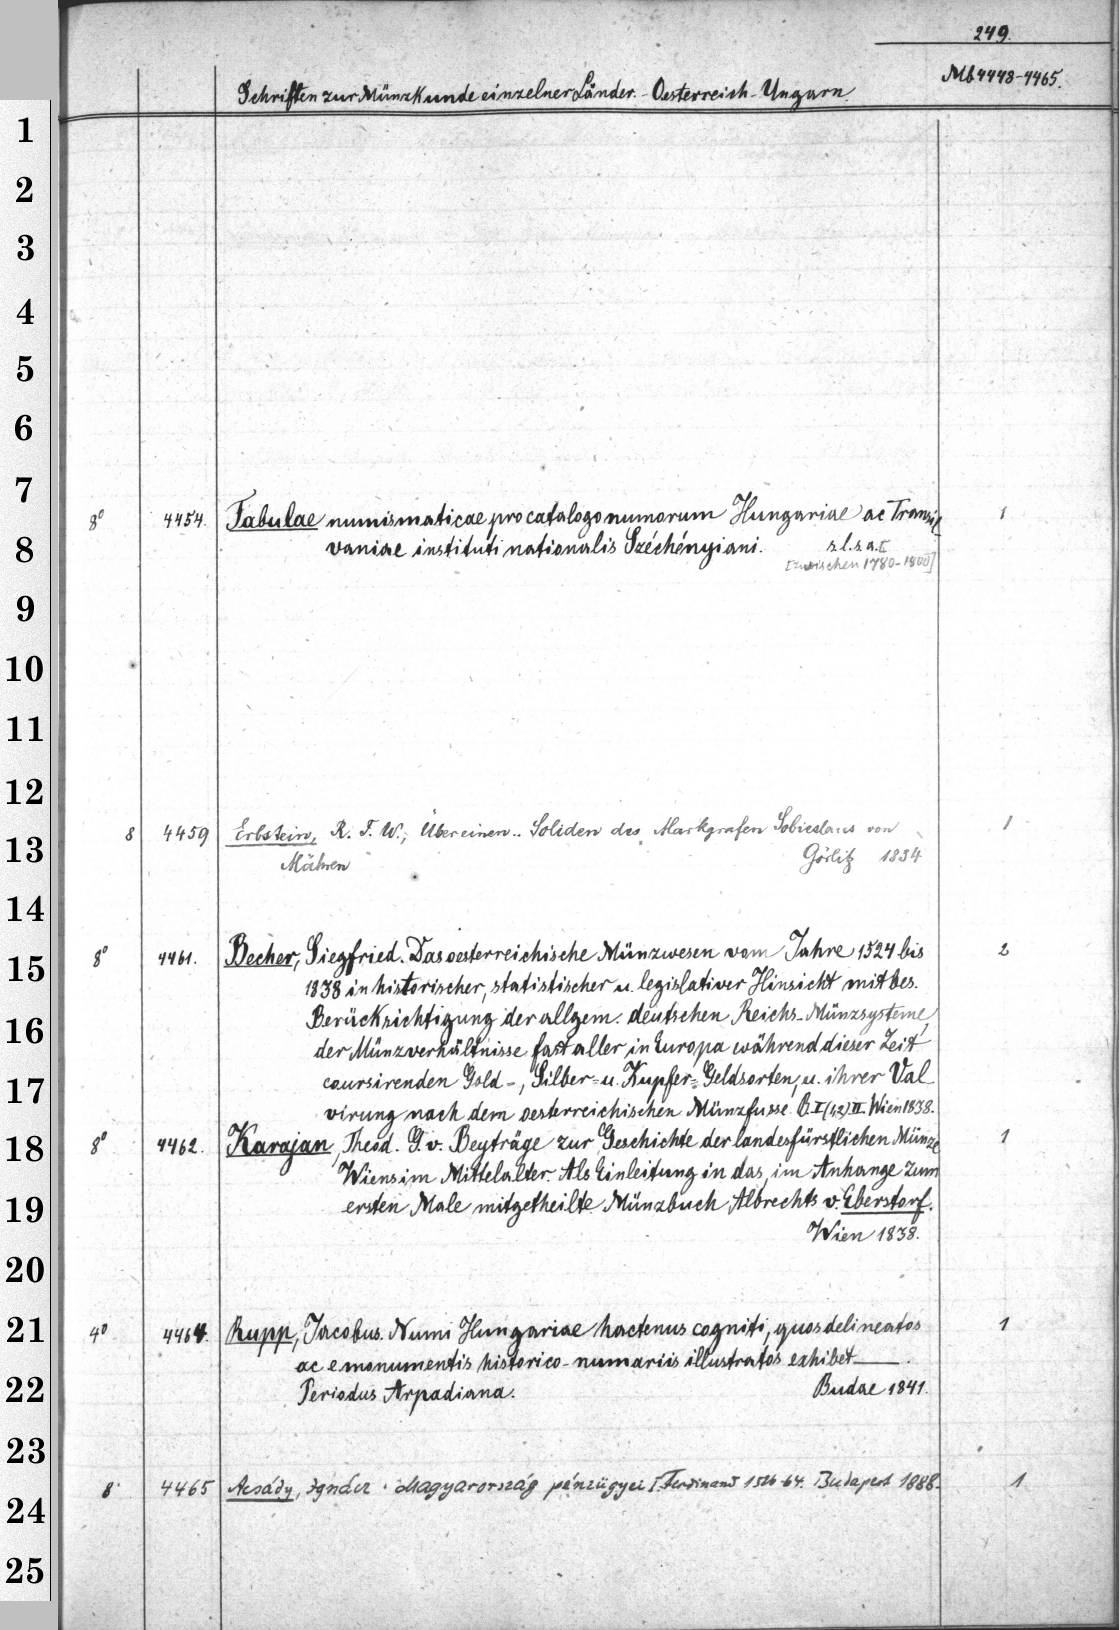 249.
Mb 4448-4465.
Schriften zur Münzkunde einzelner Länder. - Oesterreich - Ungarn.
1
2
3
4
5
6
7
8° 4454. Tabulae numismaticae pro catalogo numorum Hungariae ac Transil- 1
8
vaniae instituti nationalis Széchényiani. s. l. s. a. [
[zwischen 1780-1800]
9
10
11
12
8 4459 Erbstein, R. F. W., Über einen.. Soliden des Markgrafen Sobieslaus von 1
13
Mähren Görlitz 1834
14
8° 4461. Becher, Siegfried. Das oesterreichische Münzwesen vom Jahre 1524 bis 2
15
1838 in historischer, statistischer u. legislativer Hinsicht mit bes.
Berücksichtigung der allgem. deutschen Reichs-Münzsysteme,
16
der Münzverhältnisse fast aller in Europa während dieser Zeit
coursirenden Gold-, Silber- u. Kupfer-Geldsorten, u. ihrer Val
17
virung nach dem oesterreichischen Münzfusse. B. I (1,2) II. Wien 1838.
18
8° 4462. Karajan, Theod. G. v. Beyträge zur Geschichte der landesfürstlichen Münze 1
Wiens im Mittelalter. Als Einleitung in das, im Anhange zum
19
ersten Male mitgetheilte Münzbuch Albrechts v. Eberstorf.
Wien 1838.
20
21
4° 4464. Rupp, Jacobus. Numi Hungariae hactenus cogniti, quos delineatos 1
ac e monumentis historico-numariis illustratos exhibet ——.
22
Periodus Arpadiana. Budae 1841.
23
8° 4465 Acsády, Ignácz. Magyarország pénzügyei I. Ferdinand 1526-64. Budapest 1888. 1
24
25